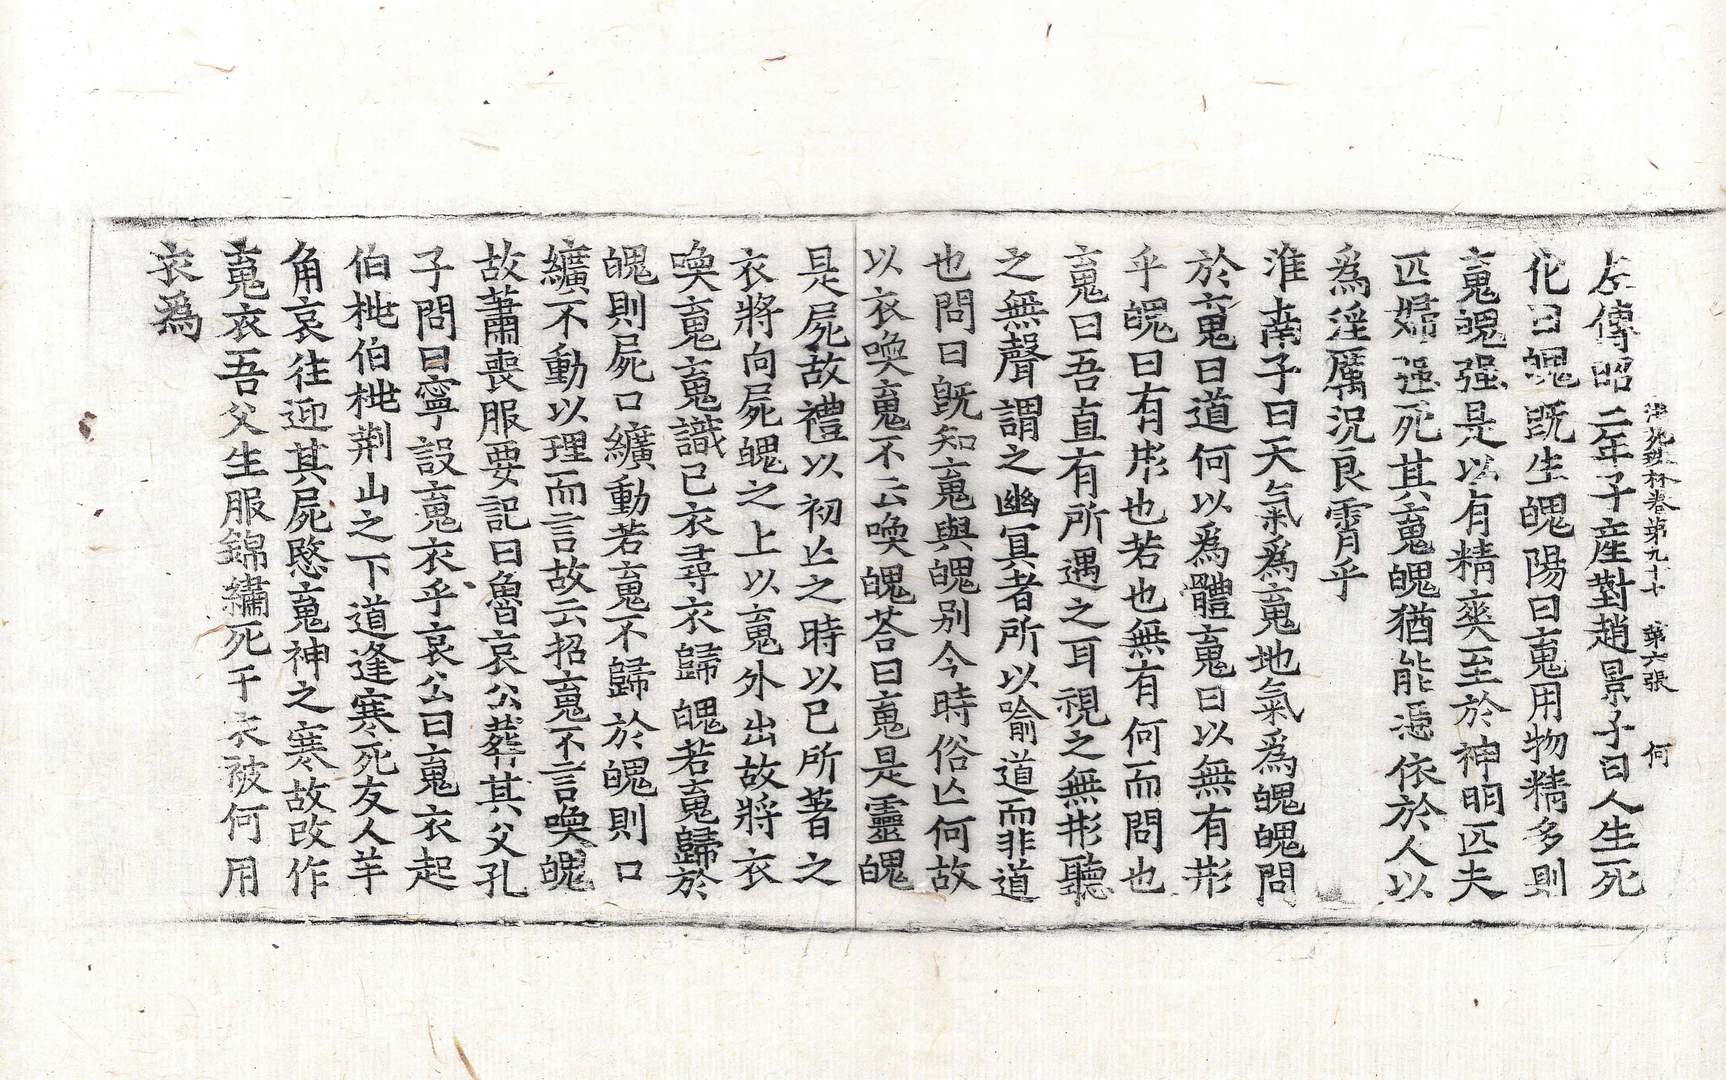 法苑珠林卷第九十七 第六張 何
左傳昭二年子產對趙景子曰人生死
化曰魄既生魄陽曰䰟用物精多則
䰟魄强是以有精爽至於神明匹夫
匹婦强死其䰟魄猶能憑依於人以
爲淫厲況良霄乎
淮南子曰天氣爲䰟地氣爲魄魄問
於䰟曰道何以爲體䰟曰以無有形
乎魄曰有形也若也無有何而問也
䰟曰吾直有所遇之耳視之無形聽
之無聲謂之幽冥者所以喻道而非道
也問曰旣知䰟與魄别今時俗亡何故
以衣喚䰟不云喚魄荅曰䰟是靈魄
是屍故禮以初亡之時以已所著之
衣將向屍魄之上以䰟外出故將衣
喚䰟䰟識己衣尋衣歸魄若䰟歸於
魄則屍口纊動若䰟不歸於魄則口
纊不動以理而言故云招䰟不言喚魄
故蕭喪服要記曰魯哀公葬其父孔
子問曰寧設䰟衣乎哀公曰䰟衣起
伯桃伯桃荆山之下道逢寒死友人羊
角哀往迎其屍愍䰟神之寒故改作
䰟衣吾父生服錦繡死于衣被何用
衣爲